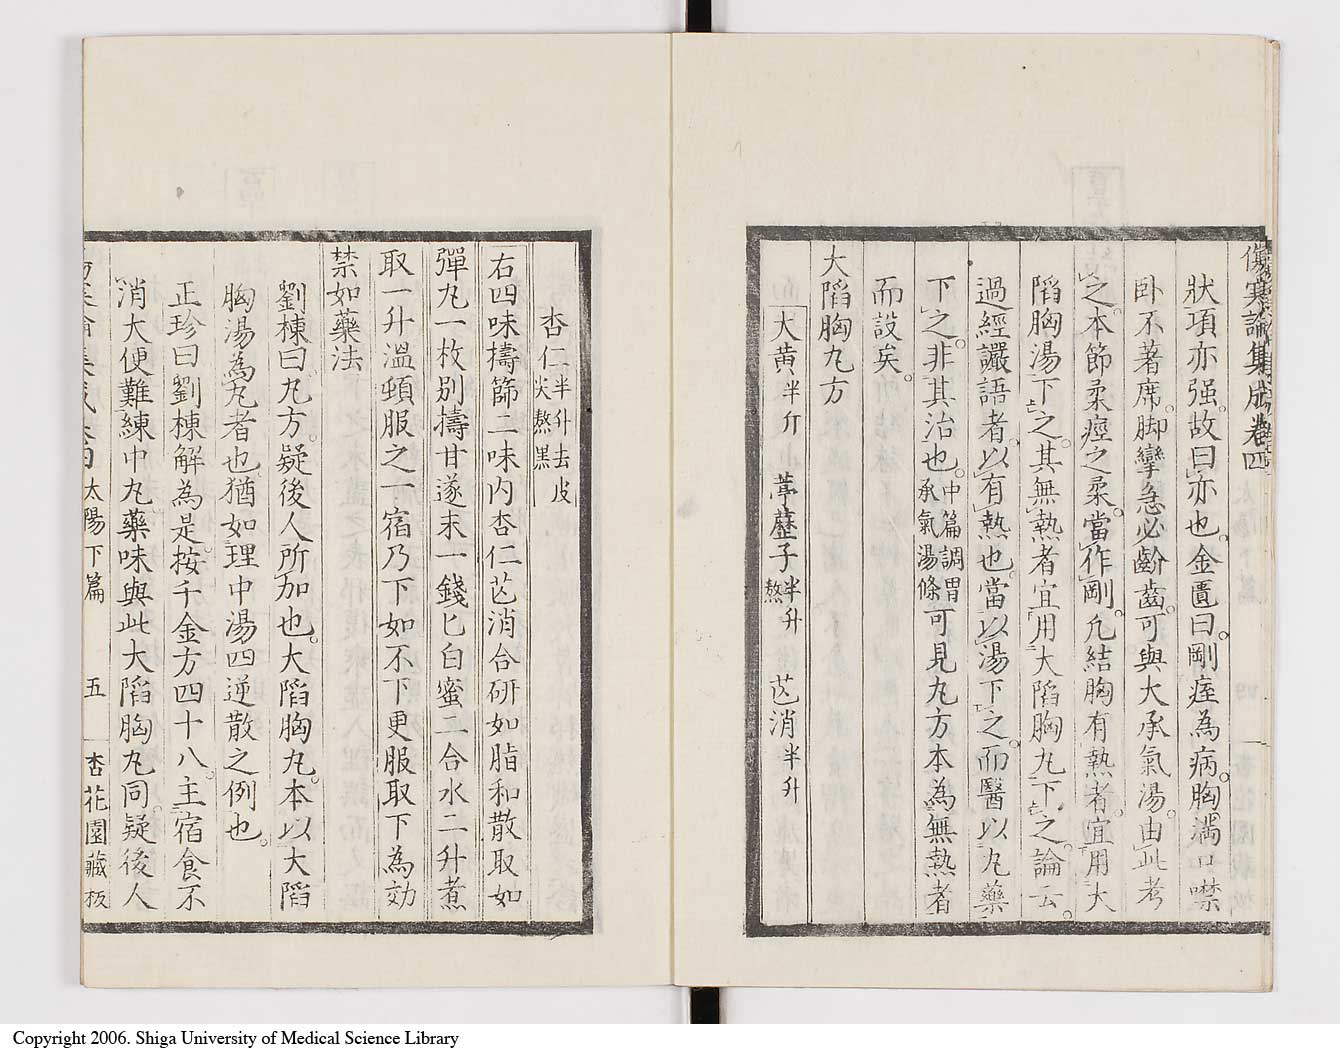 傷寒論集成卷四
狀項亦强故曰亦也金匱曰剛痓為病胸滿口噤
卧不著席脚攣急必齘齒可與大承氣湯由此考
之本節柔痙之柔當作剛凢結胸有熱者宜用大
陷胸湯下之其無熱者宜用大陷胸丸下之論云
過經讝語者以有熱也當以湯下之而醫以丸藥
下之非其治也中篇調胃承氣湯條可見丸方本為無熱者
而設矣
大陷胸丸方
大黄半斤 葶藶子半升熬 芒消半升
杏仁半升去皮尖熬黑
右四味擣篩二味内杏仁芒消合研如脂和散取如
彈丸一枚别擣甘遂末一錢匕白蜜二合水二升煮
取一升溫頓服之一宿乃下如不下更服取下為効
禁如藥法
劉棟曰丸方疑後人所加也大陷胸丸本以大陷
胸湯為丸者也猶如理中湯四逆散之例也
正珍曰劉棟解為是按千金方四十八主宿食不
消大便難練中丸藥味與此大陷胸丸同疑後人
太陽下篇 五 杏花園藏板
Copyright 2006. Shiga University of Medical Science Library